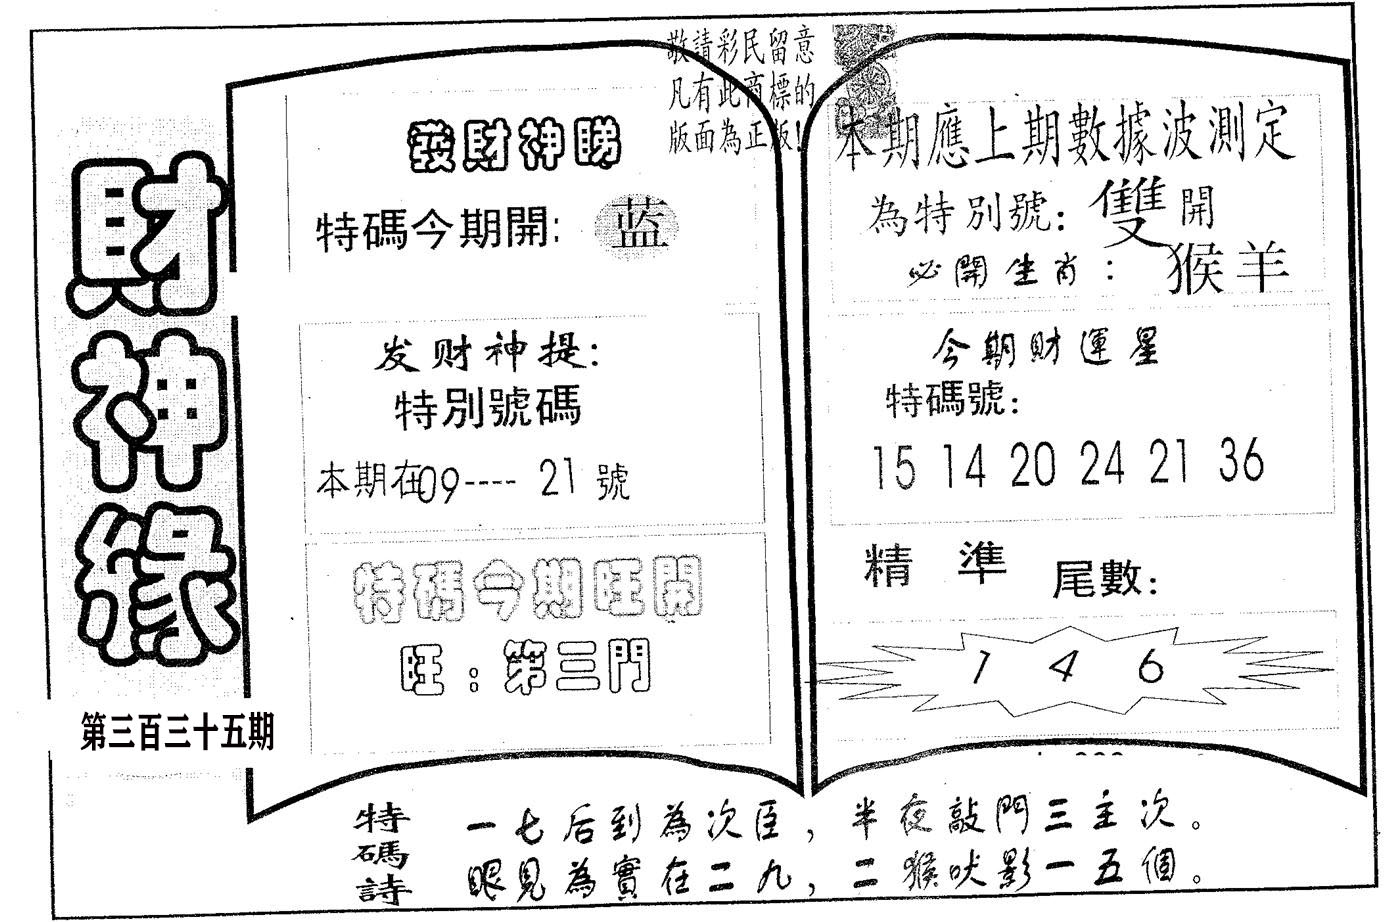 敬請彩民留意
凡有此商標的
版面為正版!
財神緣
第三百三十五期
發財神睇
特碼今期開: 蓝
发财神提:
特別號碼
本期在09---- 21 號
特碼今期旺開
旺:第三門
本期應上期數據波測定
為特別號: 雙 開
必開生肖: 猴羊
今期財運星
特碼號:
15 14 20 24 21 36
精準 尾數:
1 4 6
特碼詩
一七后到為次臣,半夜敲門三主次。
眼見為實在二九,二猴吠影一五個。